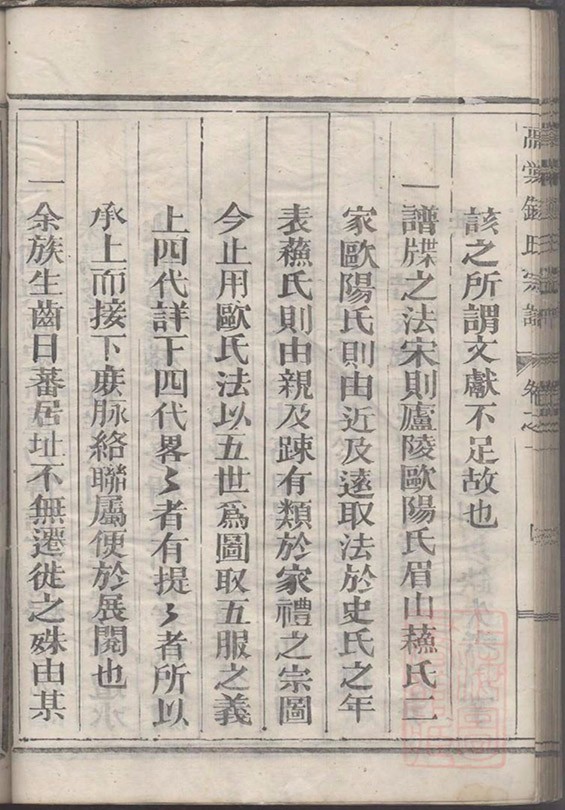 該之所謂文獻不足故也
一譜牒之法宋則廬陵歐陽氏眉山蘓氏二
家歐陽氏則由近及遠取法於史氏之年
表蘓氏則由親及踈有類於家禮之宗圖
今止用歐氏法以五世爲圖取五服之義
上四代詳下四代畧〻者有提〻者所以
承上而接下庻脉絡聯屬便於展閱也
一余族生齒日蕃居址不無遷徙之殊由某
氏宗譜
卷之